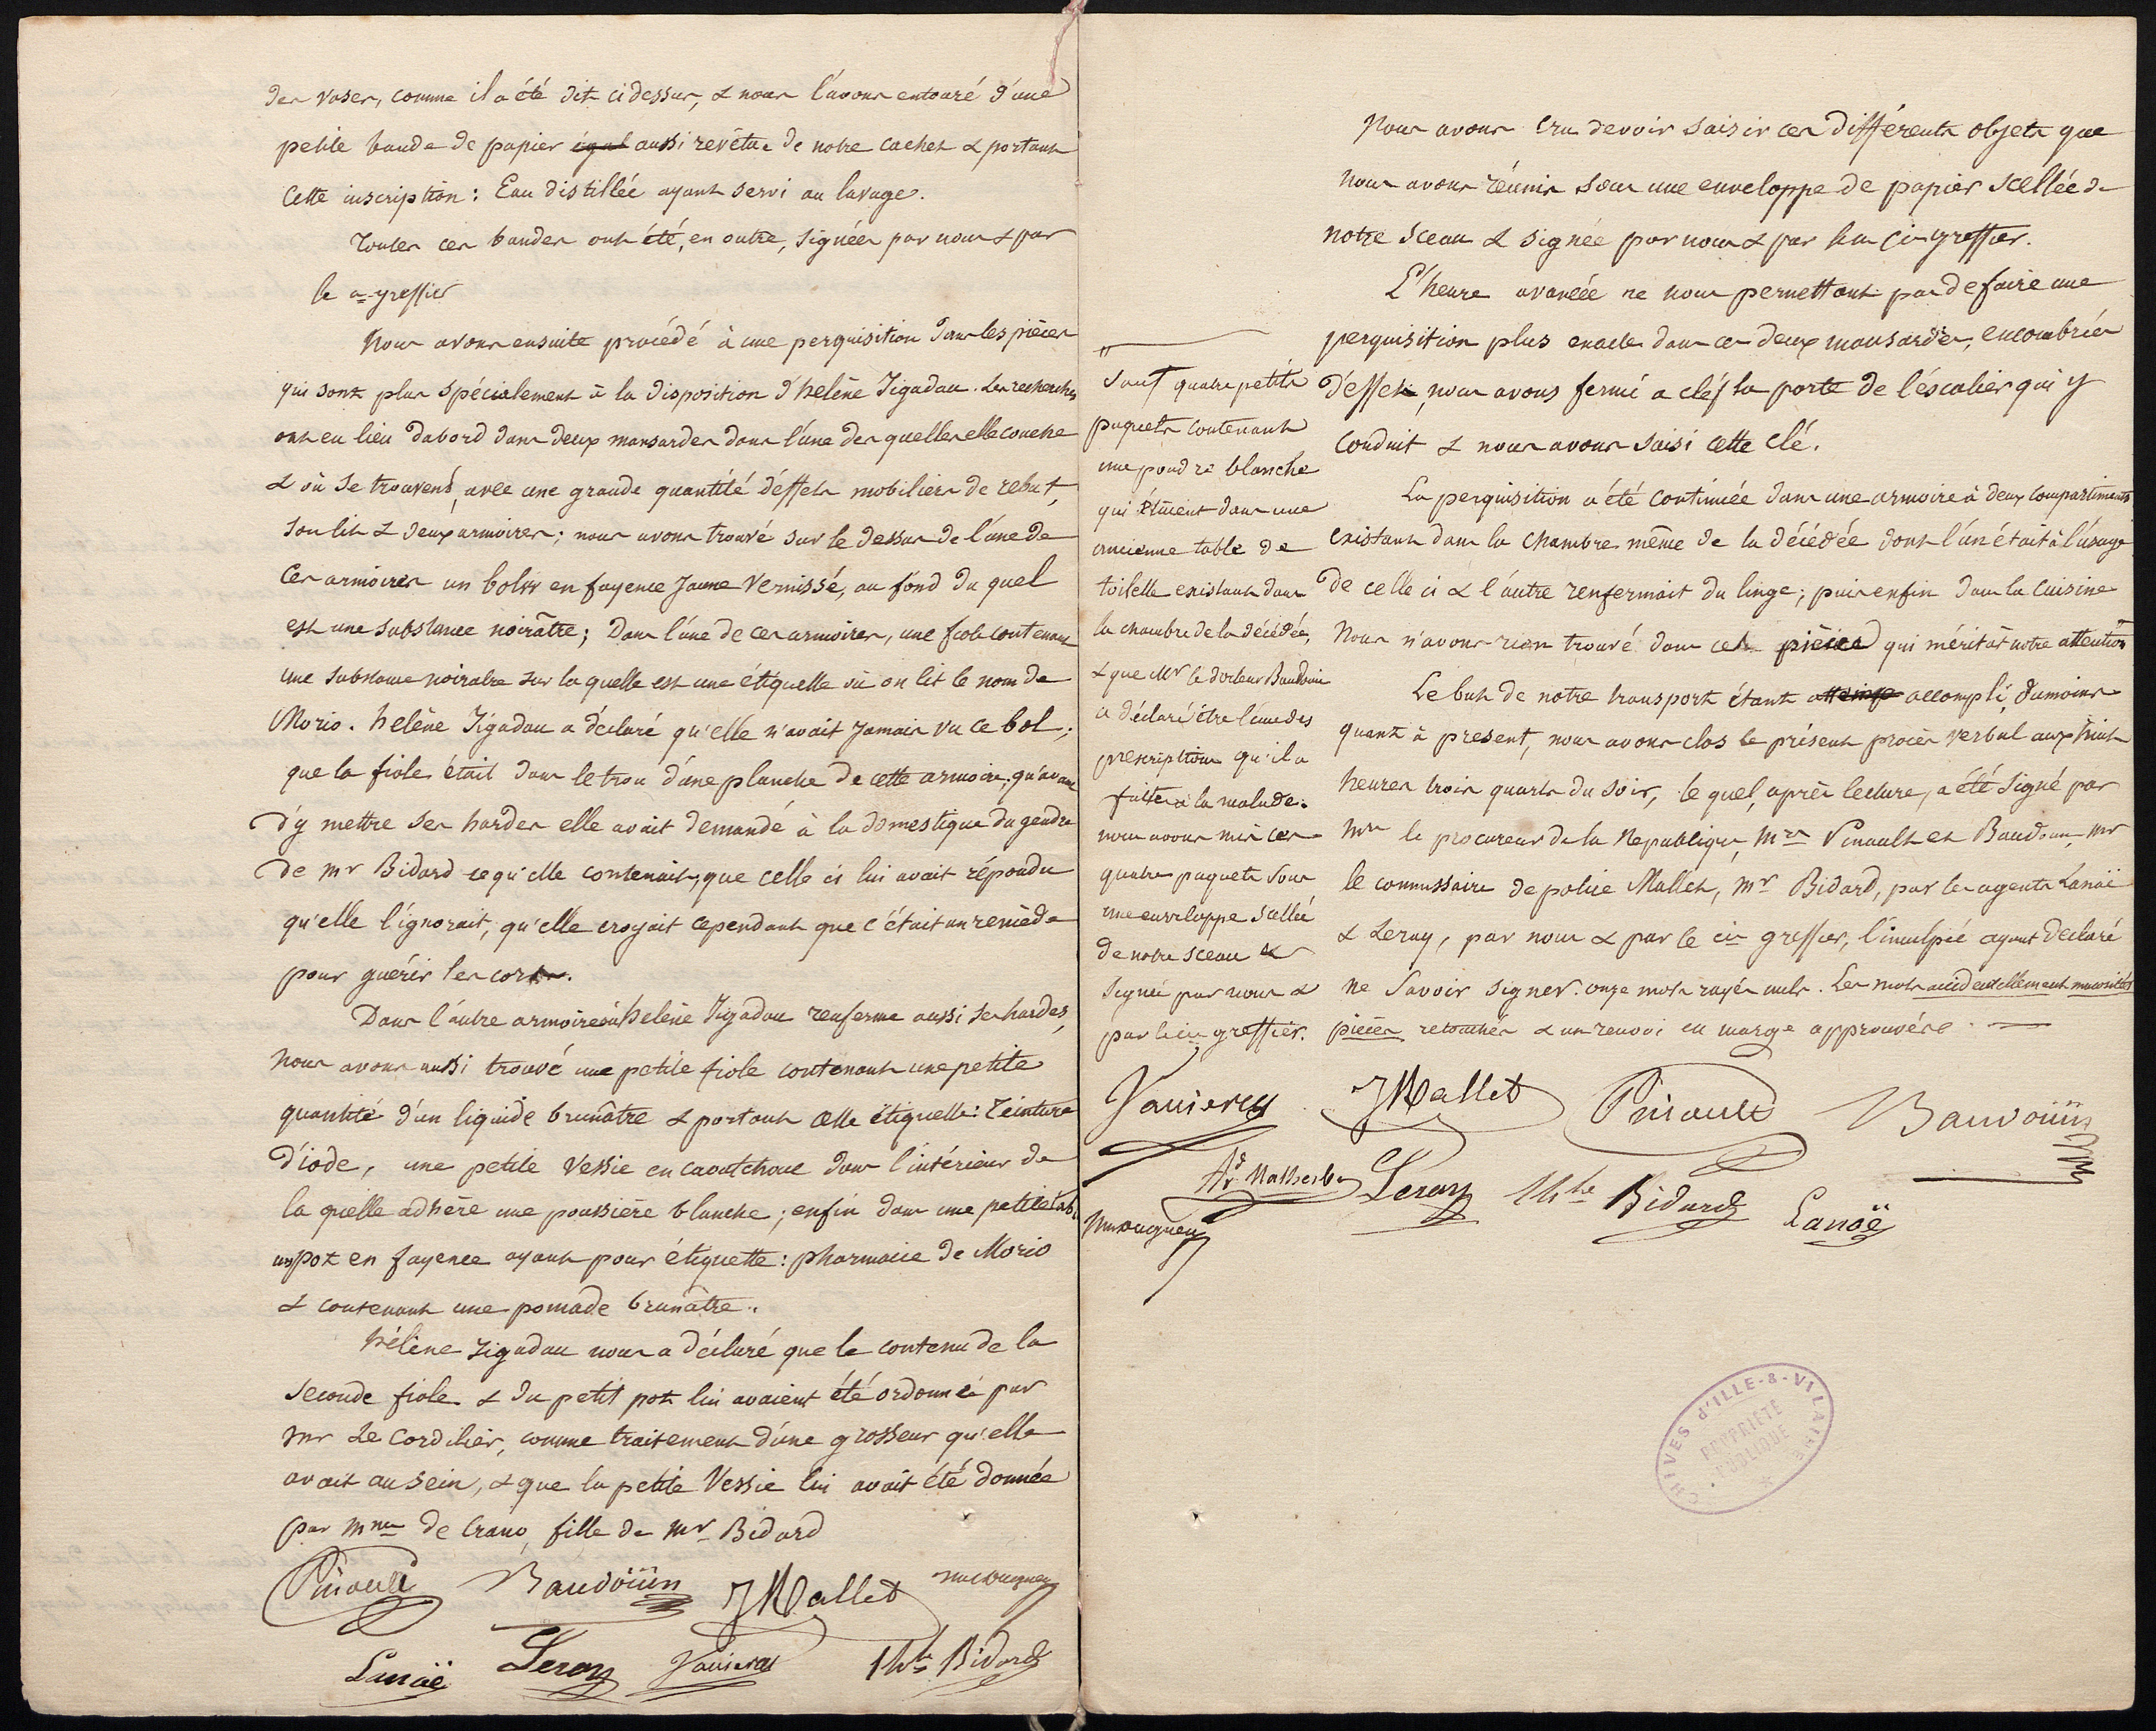 des vases, comme il a été dit ci dessus, & nous l'avons entouré d'une
petite bande de papier égal aussi revêtue de notre cachet & portant
cette inscription : Eau distillée ayant servi au lavage.
Toutes ces bandes ont été, en outre, signées par nous & par
le greffier
Nous avons ensuite procédé à une perquisition dans les pièces
qui sont plus spécialement à la disposition d'helène Jigadau. Les recherches
ont eu lieu dabord dans deux mansardes dans l'une des quelles elle couche
& où se trouvent, avec une grande quantité d'effets mobiliers de rebut,
son lit & deux armoires ; nous avons trouvé sur le dessus de l'une de
ces armoires un bol en fayence Jaune vernissé, au fond du quel
est une substance noirâtre ; Dans l'une de ces armoires, une fiole contenant
une substance noiratre sur la quelle est une étiquette où on lit le nom de
Morio. helène Jigadau a déclaré qu'elle n'avait jamais vu ce bol ;
que la fiole était dans le trou d'une planche de cette armoire, qu'avant
d'y mettre ses hardes elle avait demandé à la domestique du gendre
de mr Bidard ce qu'elle contenait, que celle ci lui avait répondu
qu'elle l'ignorait, qu'elle croyait cependant que c'était un remède
pour guérir les cors.
Dans l'autre armoire où helène Jigadau renferme aussi ses hardes,
nous avons aussi trouvé une petite fiole contenant une petite
quantité d'un liquide brunâtre & portant cette étiquette : Teinture
d'iode, une petite vessie en caoutchouc dans l'intérieur de
la quelle adhère une poussière blanche ; enfin dans une petite
un pot en fayence ayant pour étiquette : pharmacie de Morio
& contenant une pomade brunâtre.
hélène Jigadau nous a déclaré que le contenu de la
seconde fiole & du petit pot lui avaient été ordonnés par
mr Le Cordelier, comme traitement d'une grosseur qu'elle
avait au sein, & que la petite vessie lui avait été donnée
par mme de , fille de mr Bidard
Pinault Baudoüin JMallet
Lanoë Leroy Thre Bidard
Nous avons cru devoir saisir ces différents objets que
nous avons réunis sous une enveloppe de papier scellée de
notre sceau & signée par nous & par le greffier.
L'heure avancée ne nous permettant pas de faire une
perquisition plus exacte dans ces deux mansardes, encombrées
d'effets, nous avons fermé a clef la porte de l'escalier qui y
conduit & nous avons saisi cette clé.
La perquisition a été continuée dans une armoire à deux compartiments
existant dans la chambre même de la décédée dont l'un était à l'usage
de celle ci & l'autre renfermait du linge ; puis enfin dans la cuisine
Nous n'avons rien trouvé dans ces pièces qui méritât notre attention
Le but de notre transport étant atteint accompli, dumoins
quant à present, nous avons clos le présent procès verbal aux huit
heures trois quarts du soir, le quel, après lecture, a été signé par
mr le procureur de la Republique, mrs Pinault et Baudouin, mr
le commissaire de police Mallet, mr Bidard, par les agents Lanoë
& Leroy, par nous & par le greffier, l'inculpée ayant declaré
ne savoir signer. onze mots rayés nuls. Les mots accidentellement
pièces retouchés & un renvoi en marge approuvés
sauf quatre petits
paquets contenant
une poudre blanche
qui étaient dans une
ancienne table de
toilette existant dans
la chambre de la décédée,
& que Mr le docteur Baudouin
a déclaré être l'une des
prescriptions qu'il a
faites à la malade.
nous avons mis ces
quatre paquets sous
une enveloppe scellée
de notre sceau &
signée par nous &
par le greffier.
JMallet Pinault Baudoüin
Leroy Thre Bidard Lanoë
ARCHIVES d'ILLE-&-VILAINE
PROPRIÉTÉ
PUBLIQUE